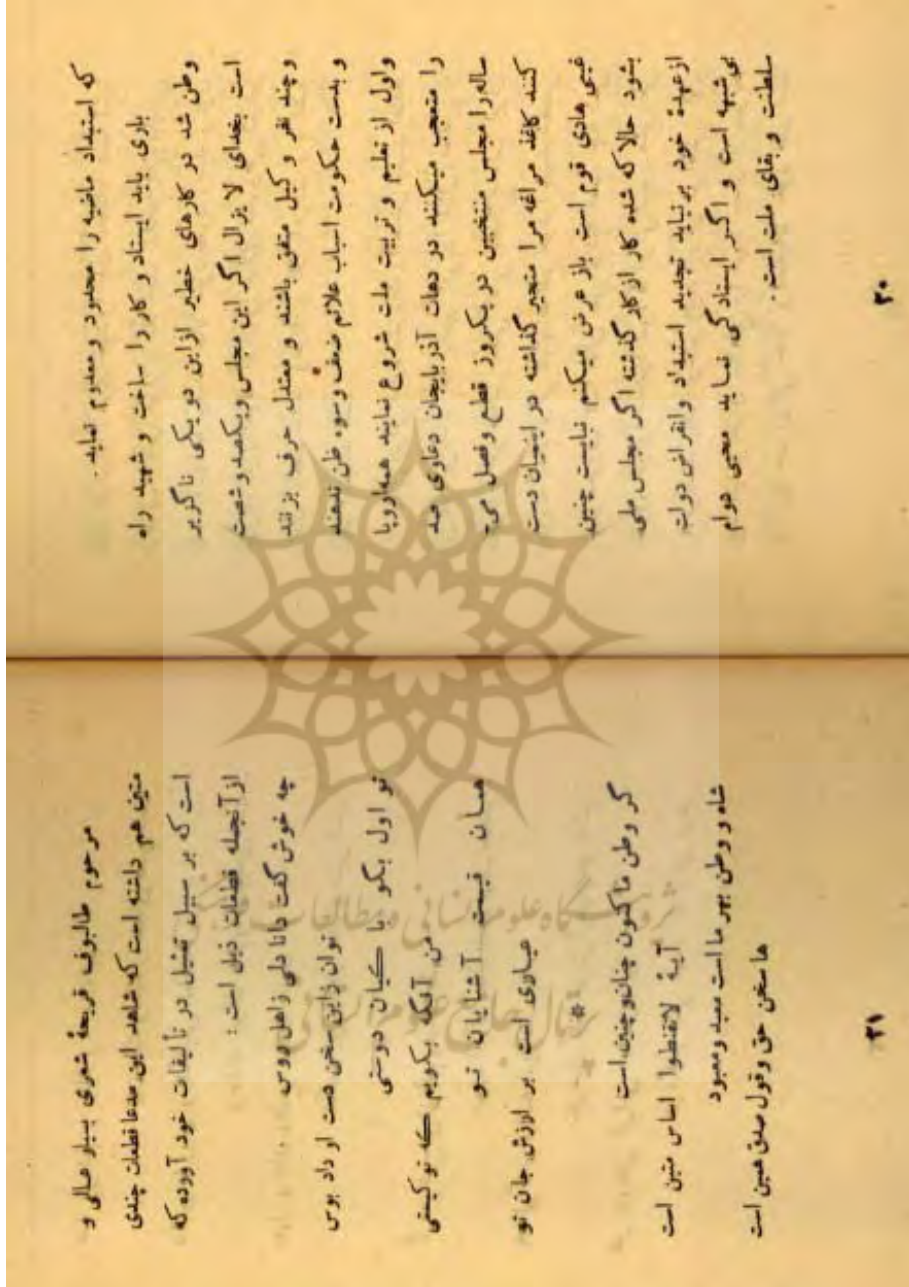 که استبداد ماضیه را محدود و معدوم نماید.
باری باید ایستاد و کار را ساخت و شهید راه
وطن شد در کارهای خطیر ازاین دو یکی ناگزیر
است بخدای لا یزال اگر این مجلس ویکصد و شصت
وچند نفر وکیل متفق باشند و معتدل حرف بزنند
و بدست حکومت اسباب علائم ضعف وسوء ظن ندهند
واول از تعلیم و تربیت ملت شروع نمایند همه اروپا
را متعجب میکنند در دهات آذربایجان دعاوی صد
ساله را مجلس منتخبین در یکروز قطع وفصل می‌
کنند کاغذ مراغه مرا متحیر گذاشته در اینمیان دست
غیبی هادی قوم است باز عرض میکنم نبایست چنین
بشود حالا که شده کار از کار گذشته اگر مجلس ملی
ازعهدۀ خود برنیاید تجدید استبداد وانقراض دولت
بی شبهه است و اگر ایستادگی نماید محیی دوام
سلطنت و بقای ملت است.
۳۰
مرحوم طالبوف قریحۀ شعری بسیار عالی و
متین هم داشته است که شاهد این مدعا قطعات چندی
است که بر سبیل تمثیل در تألیفات خود آورده که
ازآنجمله قطعات ذیل است:
چه خوش گفت دانا دلی زاهل روس
توان زاین سخن دست او داد بوس
تو اول بگو با کیان دوستی
من آنکه بگویم که تو کیستی
همان قیمت آشنایان تو
عیاری است بر ارزش جان تو
*
گر وطن ما کنون چنان وچنین است
آیۀ لاتقنطوا اساس متین است
شاه و وطن بهر ما است معبد ومعبود
ها سخن حق وقول صدق همین است
۳۱
ثروبشگاه علوم انسانی و مطالعات فرهنگی
پرتال جامع علوم انسانی